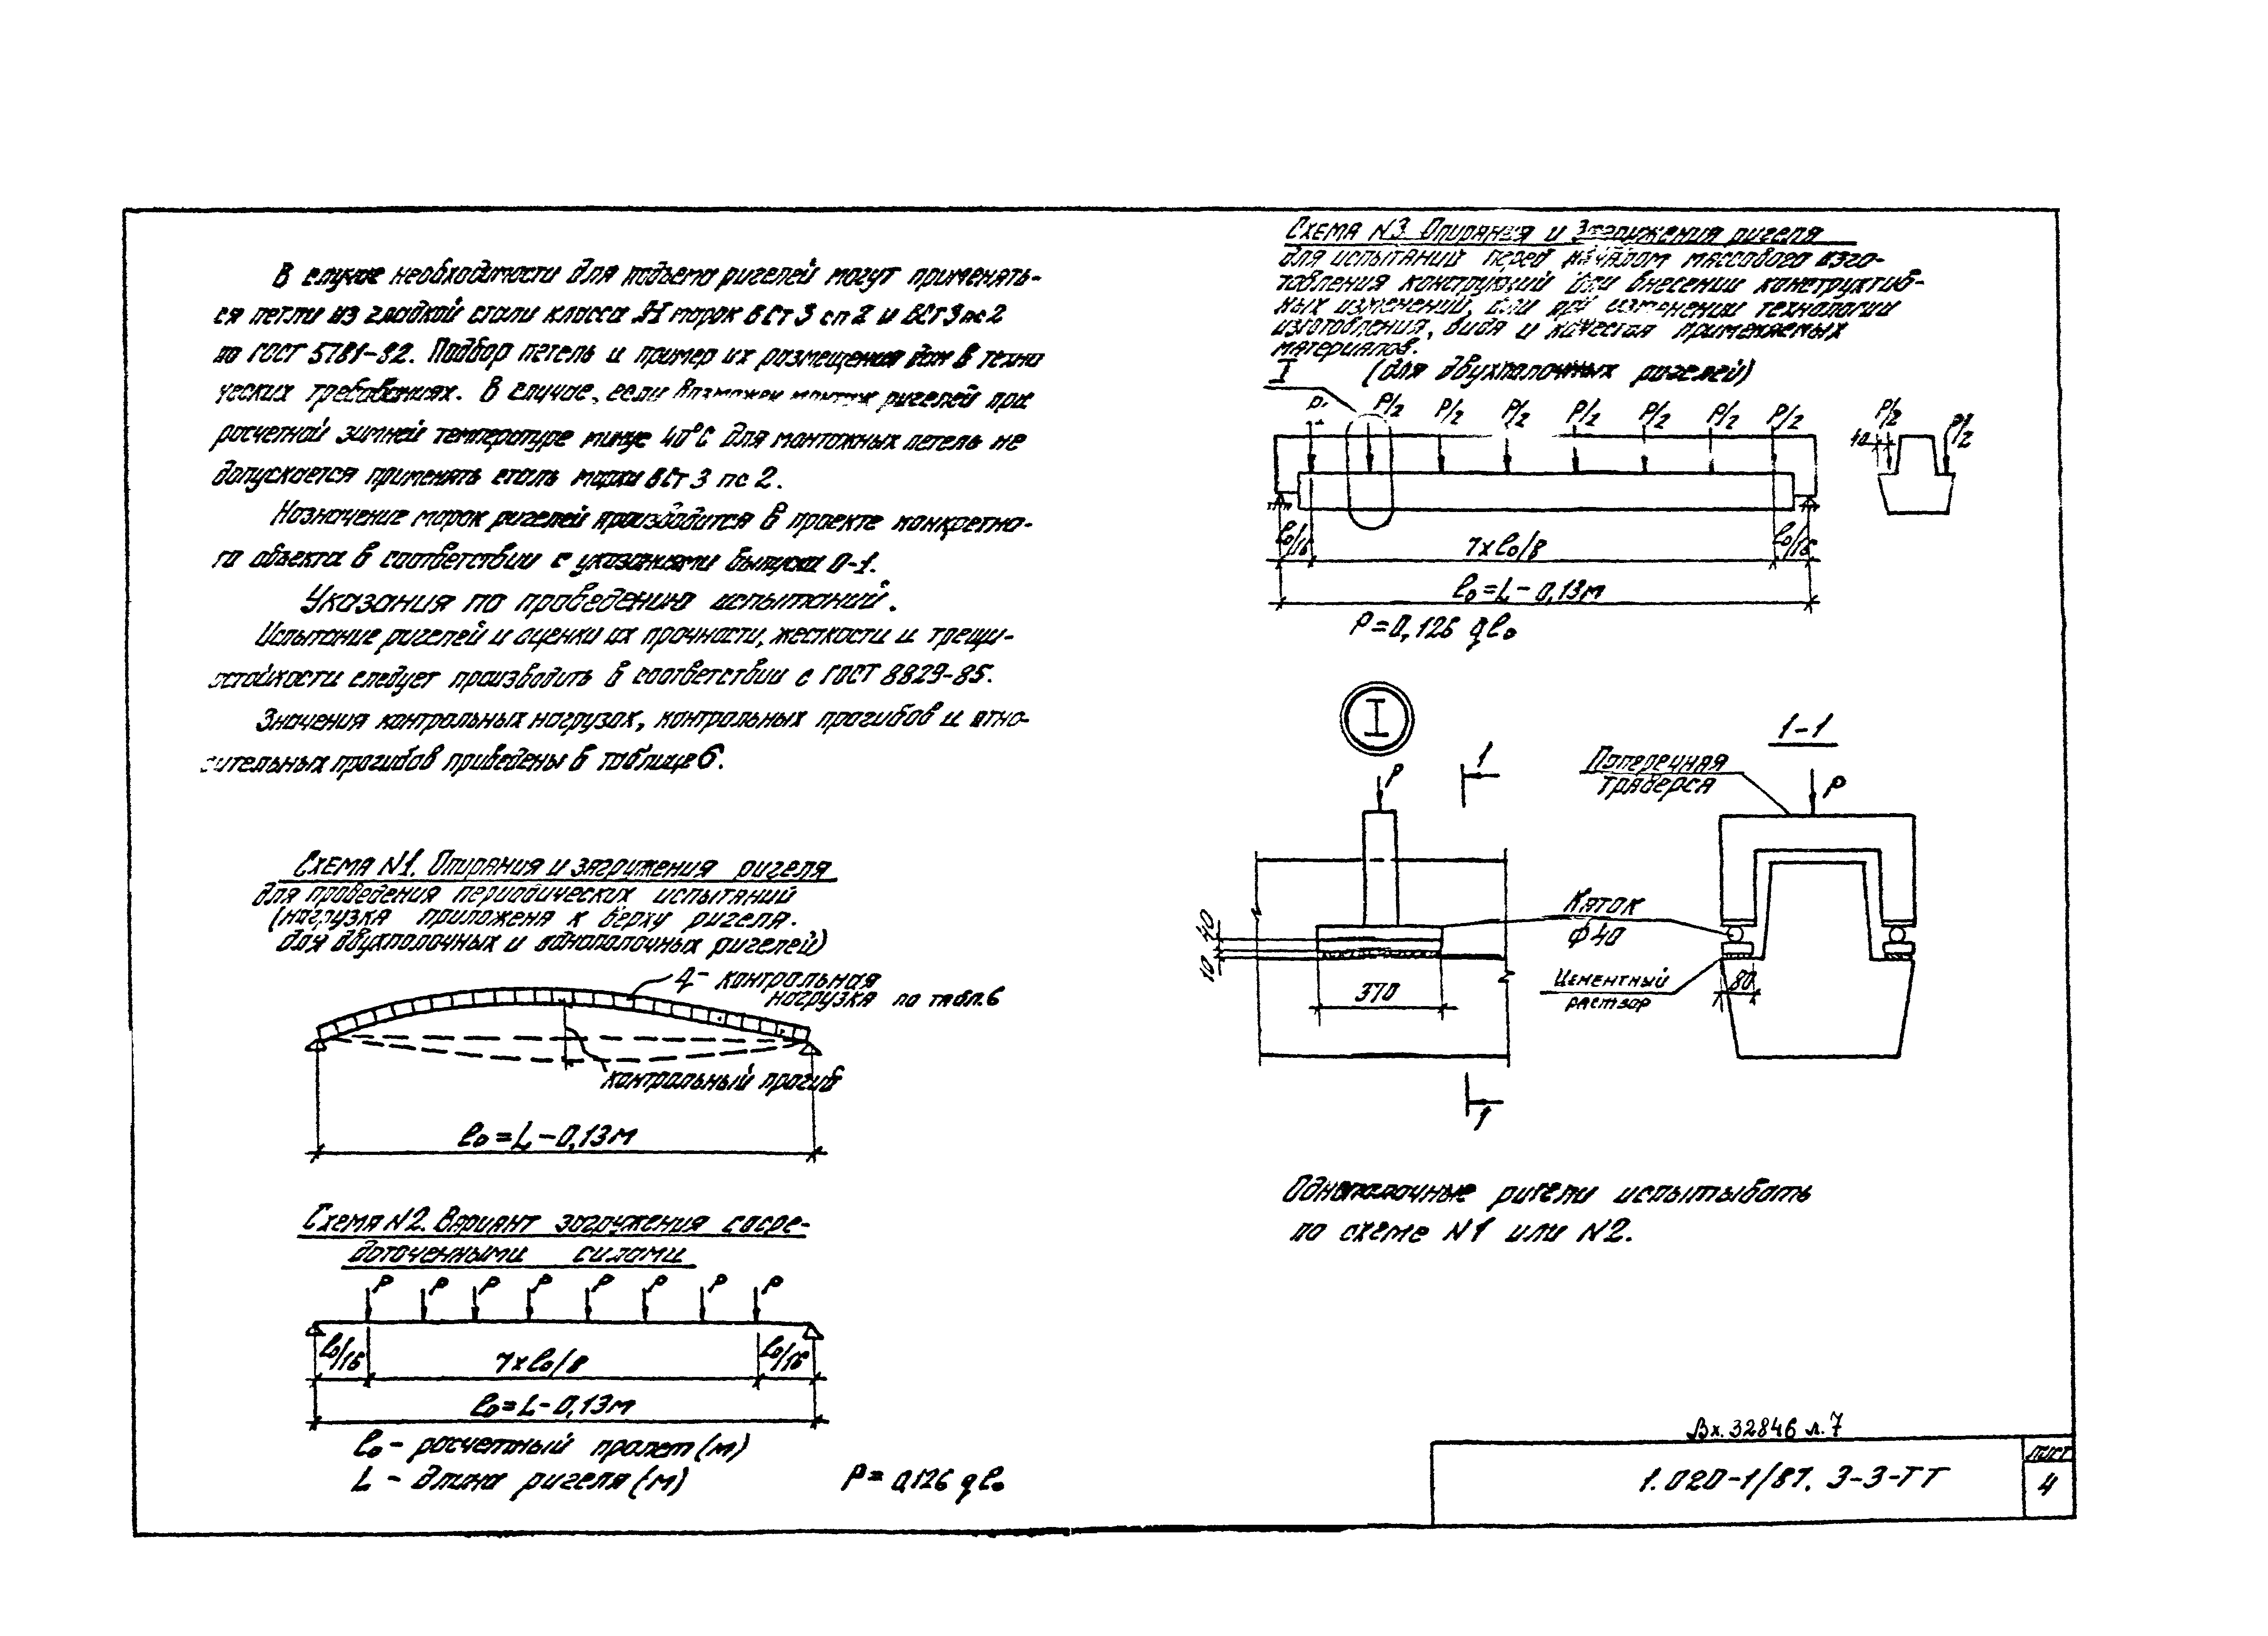 В случае необходимости для подъема ригелей могут применять-
ся петли из гладкой стали класса АI марок ВСт3сп2 и ВСт3пс2
по ГОСТ 5781-82. Подбор петель и пример их размещения дан в техни
ческих требованиях. В случае, если возможен монтаж ригелей при
расчетной зимней температуре минус 40°С для монтажных петель не
допускается применять сталь марки ВСт 3 пс 2.
Назначение марок ригелей производится в проекте конкретно-
го объекта в соответствии с указаниями выпуска 0-1.
Указания по проведению испытаний.
Испытание ригелей и оценки их прочности, жесткости и трещи-
остойкости следует производить в соответствии с ГОСТ 8829-85.
Значения контрольных нагрузок, контрольных прогибов и отно-
сительных прогибов приведены в таблице 6.
Схема N1. Опирания и загружения ригеля
для проведения периодических испытаний
(нагрузка приложена к верху ригеля.
для двухполочных и однополочных ригелей)
q - контрольная
нагрузка по табл.6
контрольный прогиб
l₀=L-0,13м
Схема N2. Вариант загружения сосре-
доточенными силами
P P P P P P P P
l₀/16 7xl₀/8 l₀/16
l₀=L-0,13м
l₀ - расчетный пролет (м)
L - длина ригеля (м)
P= 0,126 ql₀
Схема N3. Опирания и загружения ригеля
для испытаний перед началом массового изго-
товления конструкций или внесении конструктив-
ных изменений, или при изменении технологии
изготовления, вида и качества применяемых
материалов.
(для двухполочных ригелей)
I
P/2 P/2 P/2 P/2 P/2 P/2 P/2
P/2 P/2
40
l₀/16 7xl₀/8 l₀/16
l₀=L-0,13м
P=0,126 ql₀
I
1-1
1
P
Поперечная
траверса
P
Каток
ф40
40
10
370
Цементный
раствор
80
1
Однополочные ригели испытывать
по схеме N1 или N2.
Вх.32846 л.7
1.020-1/87. 3-3-ТТ
лист
4